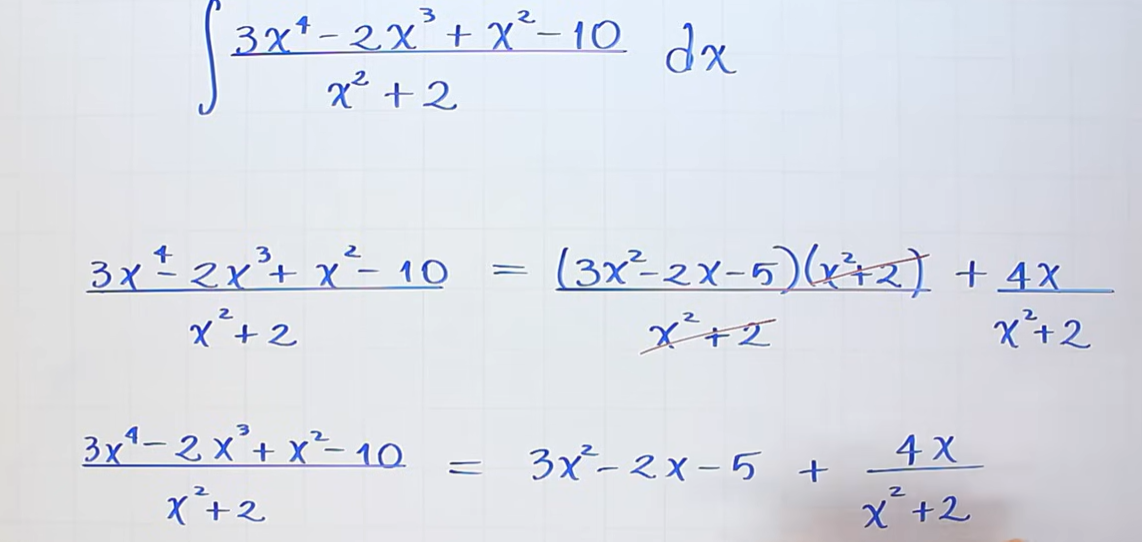 ∫ (3x⁴ - 2x³ + x² - 10)/(x² + 2) dx
(3x⁴ - 2x³ + x² - 10)/(x² + 2) = (3x² - 2x - 5)(x² + 2)/(x² + 2) + 4x/(x² + 2)
(3x⁴ - 2x³ + x² - 10)/(x² + 2) = 3x² - 2x - 5 + 4x/(x² + 2)